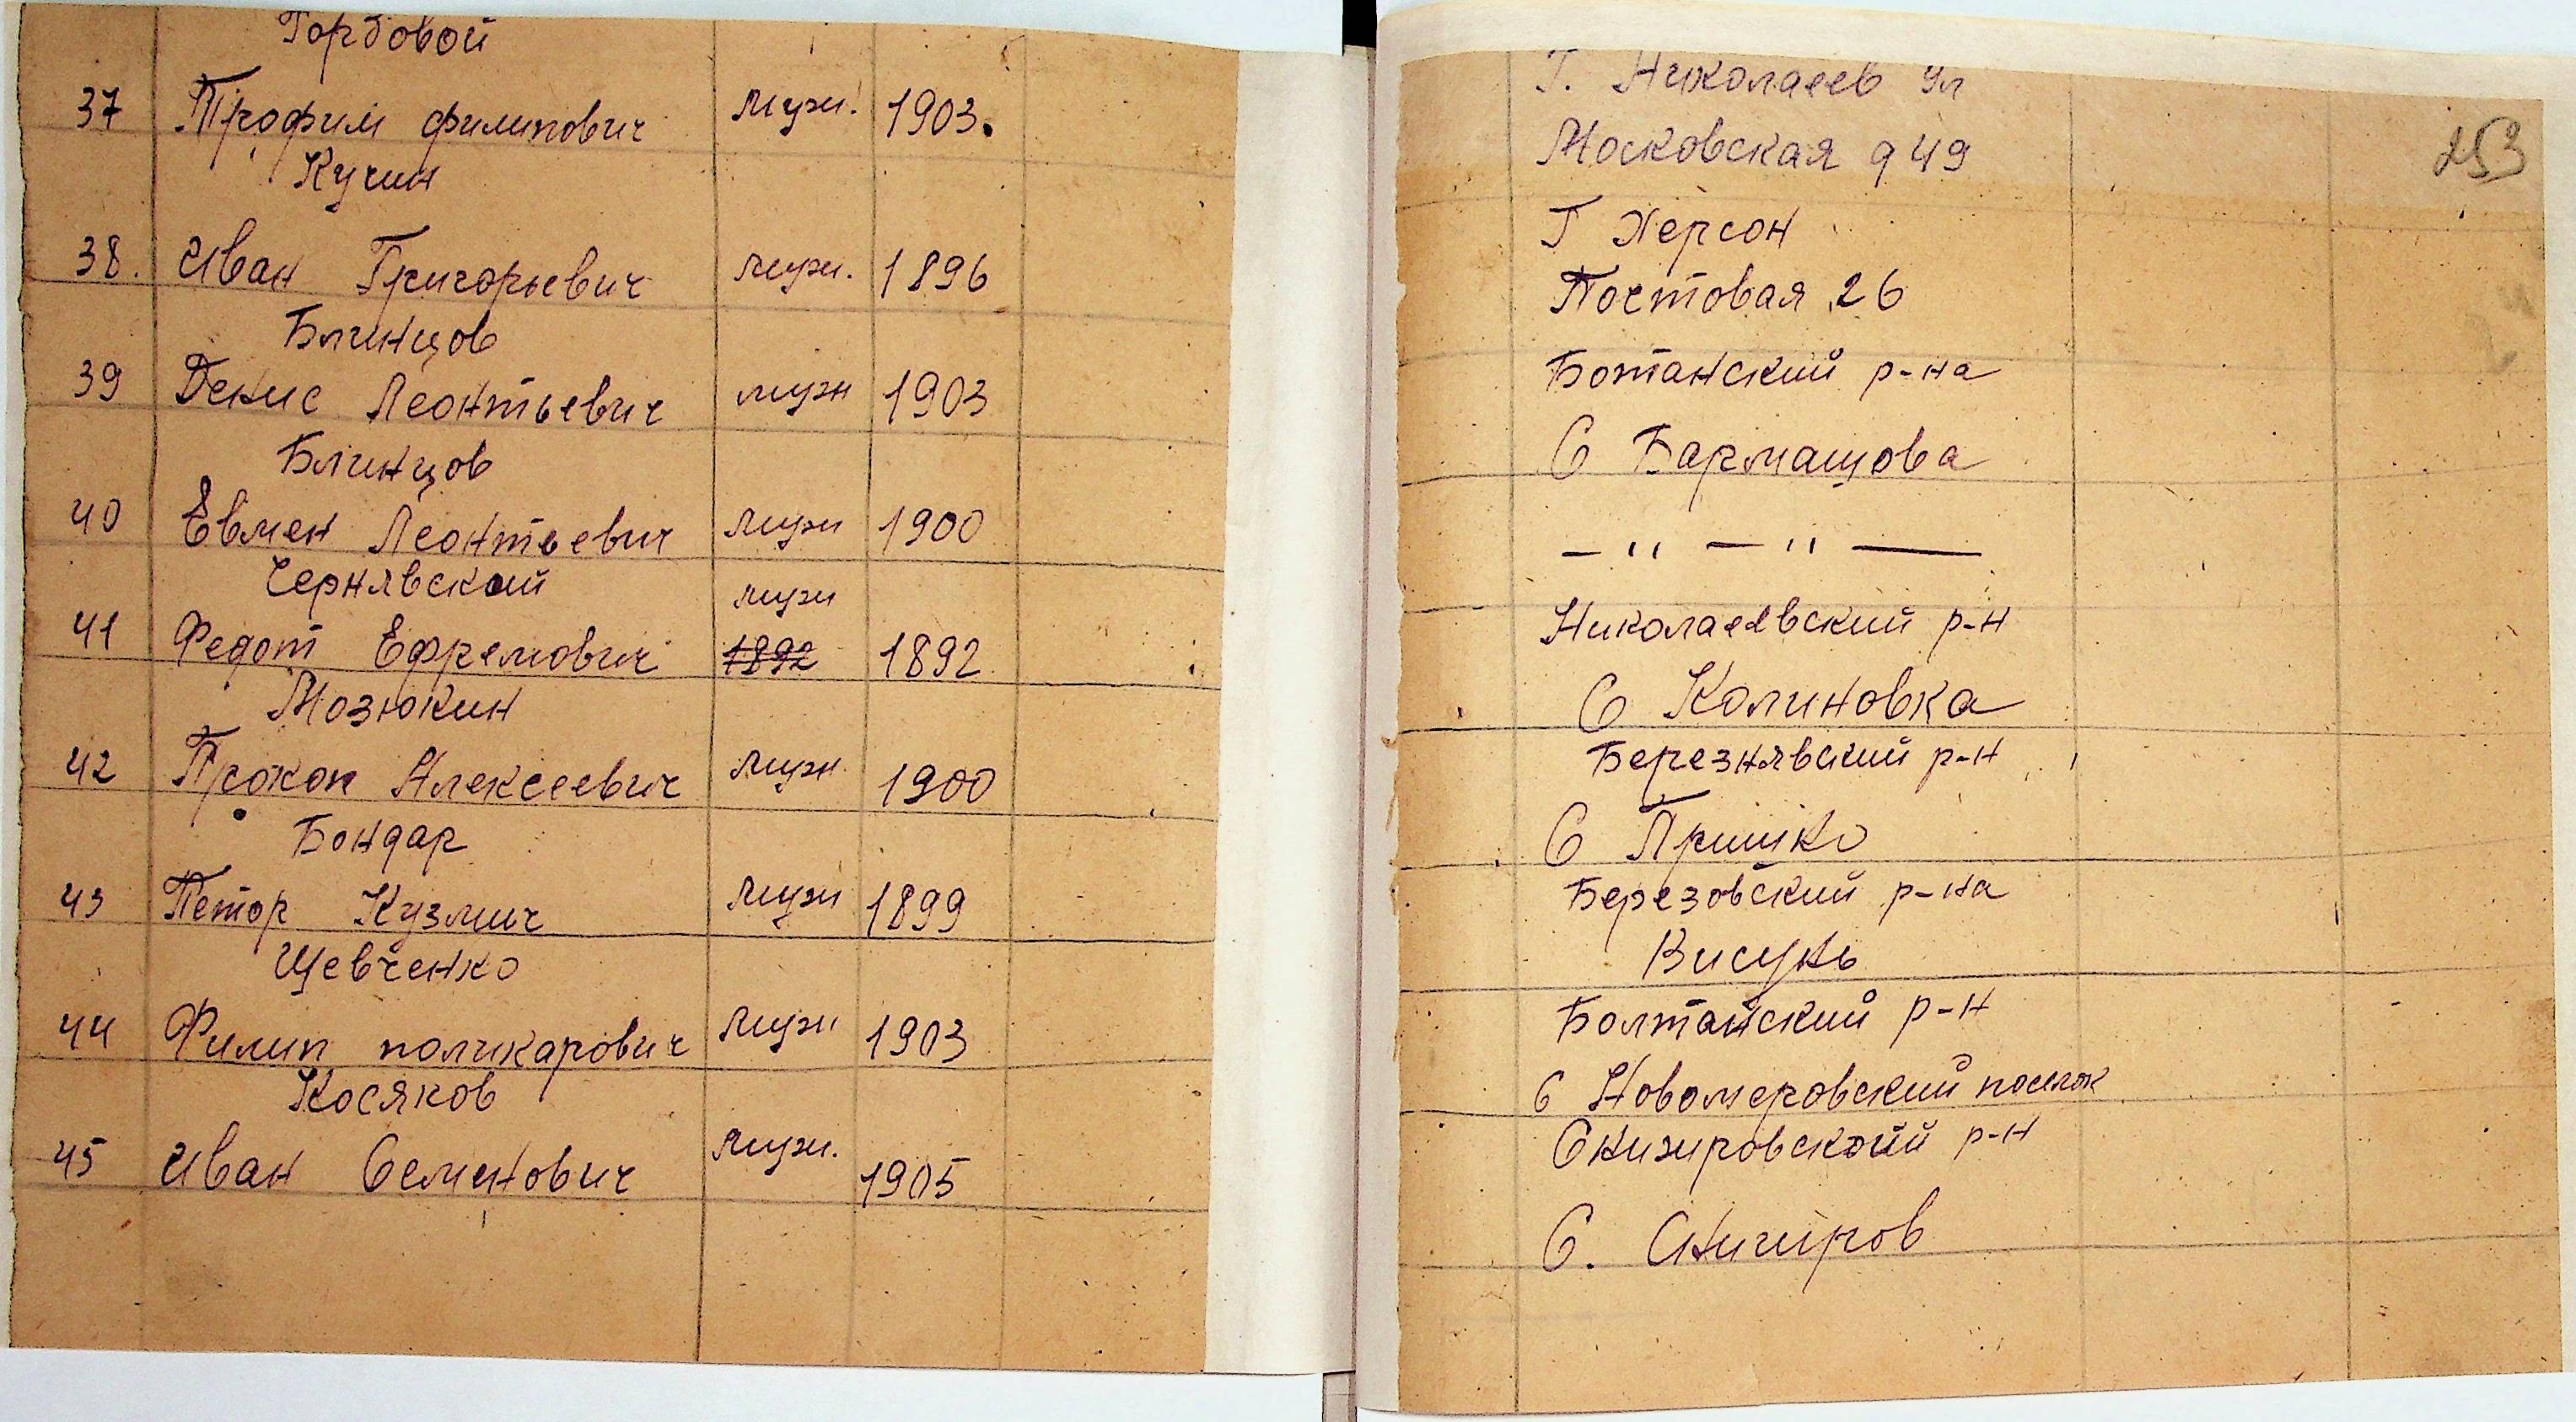 Горбовой
37 Трофим филипович муж. 1903.
Кучин
38. Иван Григорьевич муж. 1896
Блинцов
39 Денис Леонтьевич муж 1903
Блинцов
40 Евмен Леонтьевич муж 1900
Чернявский муж
41 Федот Ефремович 1892 1892
Мозюкин
42 Прокоп Алексеевич муж 1900
Бондар
43 Петор Кузмич муж 1899
Шевченко
44 Филип поликарович муж 1903
Косяков
45 Иван Семенович муж. 1905
Г. Николаев ул
Московская д 49
253
Г Херсон
Почтовая 26
Ботанский р-на
С Бармашова
— '' — '' —
Николаевский р-н
С Калиновка
Березнявский р-н
С
Березовский р-на
Висунь
Болтанский р-н
с поселок
р-н
С. Снигиров